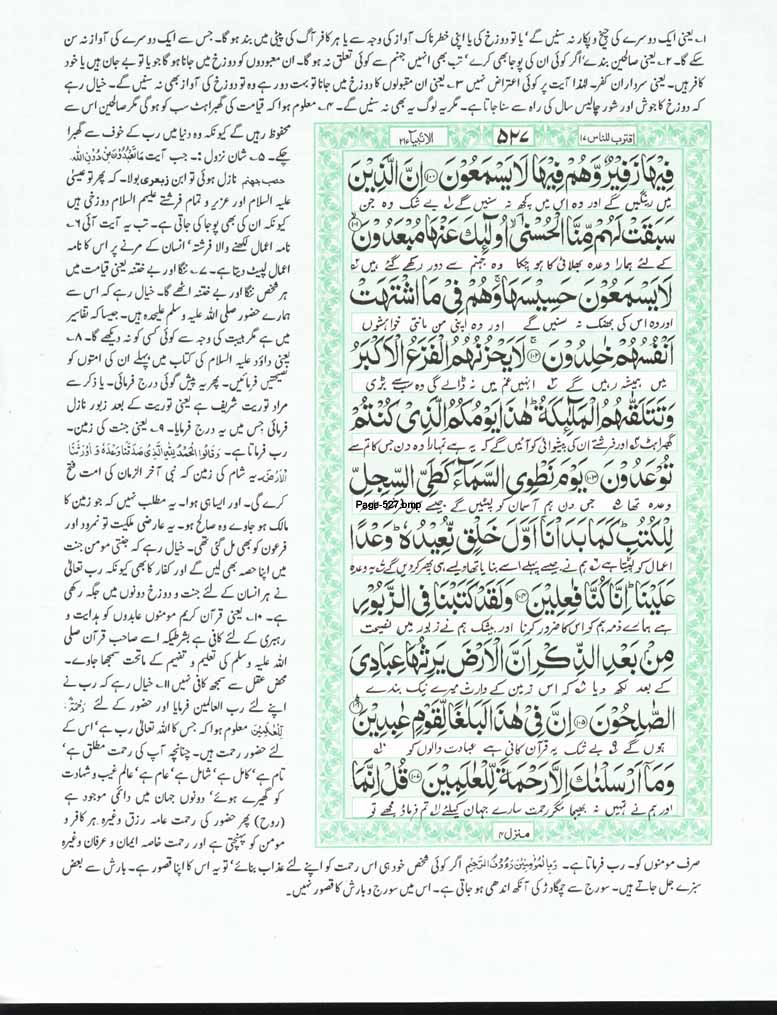 ۱؎ یعنی ایک دوسرے کی چیخ و پکار نہ سنیں گے‘ یا تو دوزخ کی یا اپنی خطرناک آواز کی وجہ سے یا ہر کافر آگ کی پیٹی میں بند ہو گا۔ جس سے ایک دوسرے کی آواز نہ سن
سکے گا۔ ۲؎ یعنی صالحین بندے‘ اگر کوئی ان کی پوجا بھی کرے‘ تب بھی انہیں جہنم سے کوئی تعلق نہ ہو گا۔ ان معبودوں کو دوزخ میں جانا ہو گا جو یا تو بے جان ہیں یا خود
کافر ہیں۔ یعنی سرداران کفر۔ لہٰذا آیت پر کوئی اعتراض نہیں ۳؎ یعنی ان مقبولوں کا دوزخ میں جانا تو بہت دور ہے وہ تو دوزخ کی آواز بھی نہ سنیں گے۔ خیال رہے
کہ دوزخ کا جوش اور شور چالیس سال کی راہ سے سنا جاتا ہے۔ مگر یہ لوگ یہ بھی نہ سنیں گے۔ ۴؎ معلوم ہوا کہ قیامت کی گھبراہٹ سب کو ہو گی مگر صالحین اس سے
محفوظ رہیں گے کیونکہ وہ دنیا میں رب کے خوف سے گھبرا
چکے۔ ۵؎ شان نزول :۔ جب آیت مَا تَعْبُدُوْنَ مِنْ دُوْنِ اللّٰہِ
حصب جہنم نازل ہوئی تو ابن زبعری بولا۔ کہ پھر تو عیسیٰ
علیہ السلام اور عزیر و تمام فرشتے علیہم السلام دوزخی ہیں
کیونکہ ان کی بھی پوجا کی جاتی ہے۔ تب یہ آیت آئی ۶؎
نامہ اعمال لکھنے والا فرشتہ‘ انسان کے مرنے پر اس کا نامہ
اعمال لپیٹ دیتا ہے۔ ۷؎ ننگا اور بے ختنہ یعنی قیامت میں
ہر شخص ننگا اور بے ختنہ اٹھے گا۔ خیال رہے کہ اس سے
ہمارے حضور صلی اللہ علیہ وسلم علیحدہ ہیں۔ جیسا کہ تفاسیر
میں ہے مگر ہیبت کی وجہ سے کوئی کسی کو نہ دیکھے گا۔ ۸؎
یعنی داؤد علیہ السلام کی کتاب میں پہلے ان کی امتوں کو
نصیحتیں فرمائیں۔ پھر یہ پیش گوئی درج فرمائی۔ یا ذکر سے
مراد توریت شریف ہے یعنی توریت کے بعد زبور نازل
فرمائی جس میں یہ درج فرمایا۔ ۹؎ یعنی جنت کی زمین۔
رب فرماتا ہے۔ وَقَالُوا الْحَمْدُ لِلّٰہِ الَّذِیْ صَدَقَنَا وَعْدَہٗ وَ اَوْرَثَنَا
الْاَرْضَ۔ یہ شام کی زمین کہ نبی آخر الزمان کی امت فتح
کرے گی۔ اور ایسا ہی ہوا۔ یہ مطلب نہیں کہ جو زمین کا
مالک ہو جاوے وہ صالح ہو۔ یہ عارضی ملکیت تو نمرود اور
فرعون کو بھی مل گئی تھی۔ خیال رہے کہ جنتی مومن جنت
میں اپنا حصہ بھی لیں گے اور کفار کا بھی کیونکہ رب تعالیٰ
نے ہر انسان کے لئے جنت و دوزخ دونوں میں جگہ رکھی
ہے۔ ۱۰؎ یعنی قرآن کریم مومنوں عابدوں کو ہدایت و
رہبری کے لئے کافی ہے بشرطیکہ اسے صاحب قرآن صلی
اللہ علیہ وسلم کی تعلیم و تفہیم کے ماتحت سمجھا جاوے۔
محض عقل سے سمجھ کافی نہیں ۱۱؎ خیال رہے کہ رب نے
اپنے لئے رب العالمین فرمایا اور حضور کے لئے رَحْمَۃً
لِّلْعٰلَمِیْنَ معلوم ہوا کہ جس کا اللہ تعالیٰ رب ہے‘ اس کے
لئے حضور رحمت ہیں۔ چنانچہ آپ کی رحمت مطلق ہے‘
تام ہے‘ کامل ہے‘ شامل ہے‘ عام ہے‘ عالم غیب و شہادت
کو گھیرے ہوئے‘ دونوں جہان میں دائمی موجود ہے
(روح) پھر حضور کی رحمت عامہ رزق وغیرہ ہر کافر و
مومن کو پہنچتی ہے اور رحمت خاصہ ایمان و عرفان وغیرہ
اقترب للناس ۱۷ ۵۲۷ الانبیآء ۲۱
فِیْهَا زَفِیْرٌ وَّهُمْ فِیْهَا لَا یَسْمَعُوْنَ ۝۱۰۰ اِنَّ الَّذِیْنَ
میں رینگیں گے اور وہ اس میں کچھ نہ سنیں گے بے شک وہ جن
سَبَقَتْ لَهُمْ مِّنَّا الْحُسْنٰۤی ۙ اُولٰٓىِٕكَ عَنْهَا مُبْعَدُوْنَ ۝۱۰۱
کے لئے ہمارا وعدہ بھلائی کا ہو چکا وہ جہنم سے دور رکھے گئے ہیں
لَا یَسْمَعُوْنَ حَسِیْسَهَا ۚ وَهُمْ فِیْ مَا اشْتَهَتْ
اور وہ اس کی بھنک نہ سنیں گے اور وہ اپنی من مانتی خواہشوں
اَنْفُسُهُمْ خٰلِدُوْنَ ۝۱۰۲ لَا یَحْزُنُهُمُ الْفَزَعُ الْاَكْبَرُ
میں ہمیشہ رہیں گے انہیں غم میں نہ ڈالے گی وہ سب سے بڑی
وَتَتَلَقّٰىهُمُ الْمَلٰٓىِٕكَةُ ؕ هٰذَا یَوْمُكُمُ الَّذِیْ كُنْتُمْ
گھبراہٹ اور فرشتے ان کی پیشوائی کو آئیں گے کہ یہ ہے تمہارا وہ دن جس کا تم سے
تُوْعَدُوْنَ ۝۱۰۳ یَوْمَ نَطْوِی السَّمَآءَ كَطَیِّ السِّجِلِّ
وعدہ تھا جس دن ہم آسمان کو لپیٹیں گے جیسے
Page-527.bmp
لِلْكُتُبِ ؕ كَمَا بَدَاْنَاۤ اَوَّلَ خَلْقٍ نُّعِیْدُهٗ ؕ وَعْدًا
اعمال کو لپیٹتا ہے ہم نے جیسے پہلے اسے بنایا تھا ویسے ہی پھر کر دیں گے یہ وعدہ
عَلَیْنَا ؕ اِنَّا كُنَّا فٰعِلِیْنَ ۝۱۰۴ وَلَقَدْ كَتَبْنَا فِی الزَّبُوْرِ
ہے ہمارے ذمہ ہم کو اس کا ضرور کرنا اور بیشک ہم نے زبور میں نصیحت
مِنْۢ بَعْدِ الذِّكْرِ اَنَّ الْاَرْضَ یَرِثُهَا عِبَادِیَ
کے بعد لکھ دیا کہ اس زمین کے وارث میرے نیک بندے
الصّٰلِحُوْنَ ۝۱۰۵ اِنَّ فِیْ هٰذَا لَبَلٰغًا لِّقَوْمٍ عٰبِدِیْنَ ۝۱۰۶
ہوں گے بے شک یہ قرآن کافی ہے عبادت والوں کو
وَمَاۤ اَرْسَلْنٰكَ اِلَّا رَحْمَةً لِّلْعٰلَمِیْنَ ۝۱۰۷ قُلْ اِنَّمَا
اور ہم نے تمہیں نہ بھیجا مگر رحمت سارے جہان کیلئے تم فرماؤ مجھے تو
منزل ۴
صرف مومنوں کو۔ رب فرماتا ہے۔ وَبِالْمُؤْمِنِیْنَ رَءُوْفٌ الرَّحِیْمِ اگر کوئی شخص خود ہی اس رحمت کو اپنے لئے عذاب بنائے‘ تو یہ اس کا اپنا قصور ہے۔ بارش سے بعض
سبزے جل جاتے ہیں۔ سورج سے چمگادڑ کی آنکھ اندھی ہو جاتی ہے۔ اس میں سورج و بارش کا قصور نہیں۔